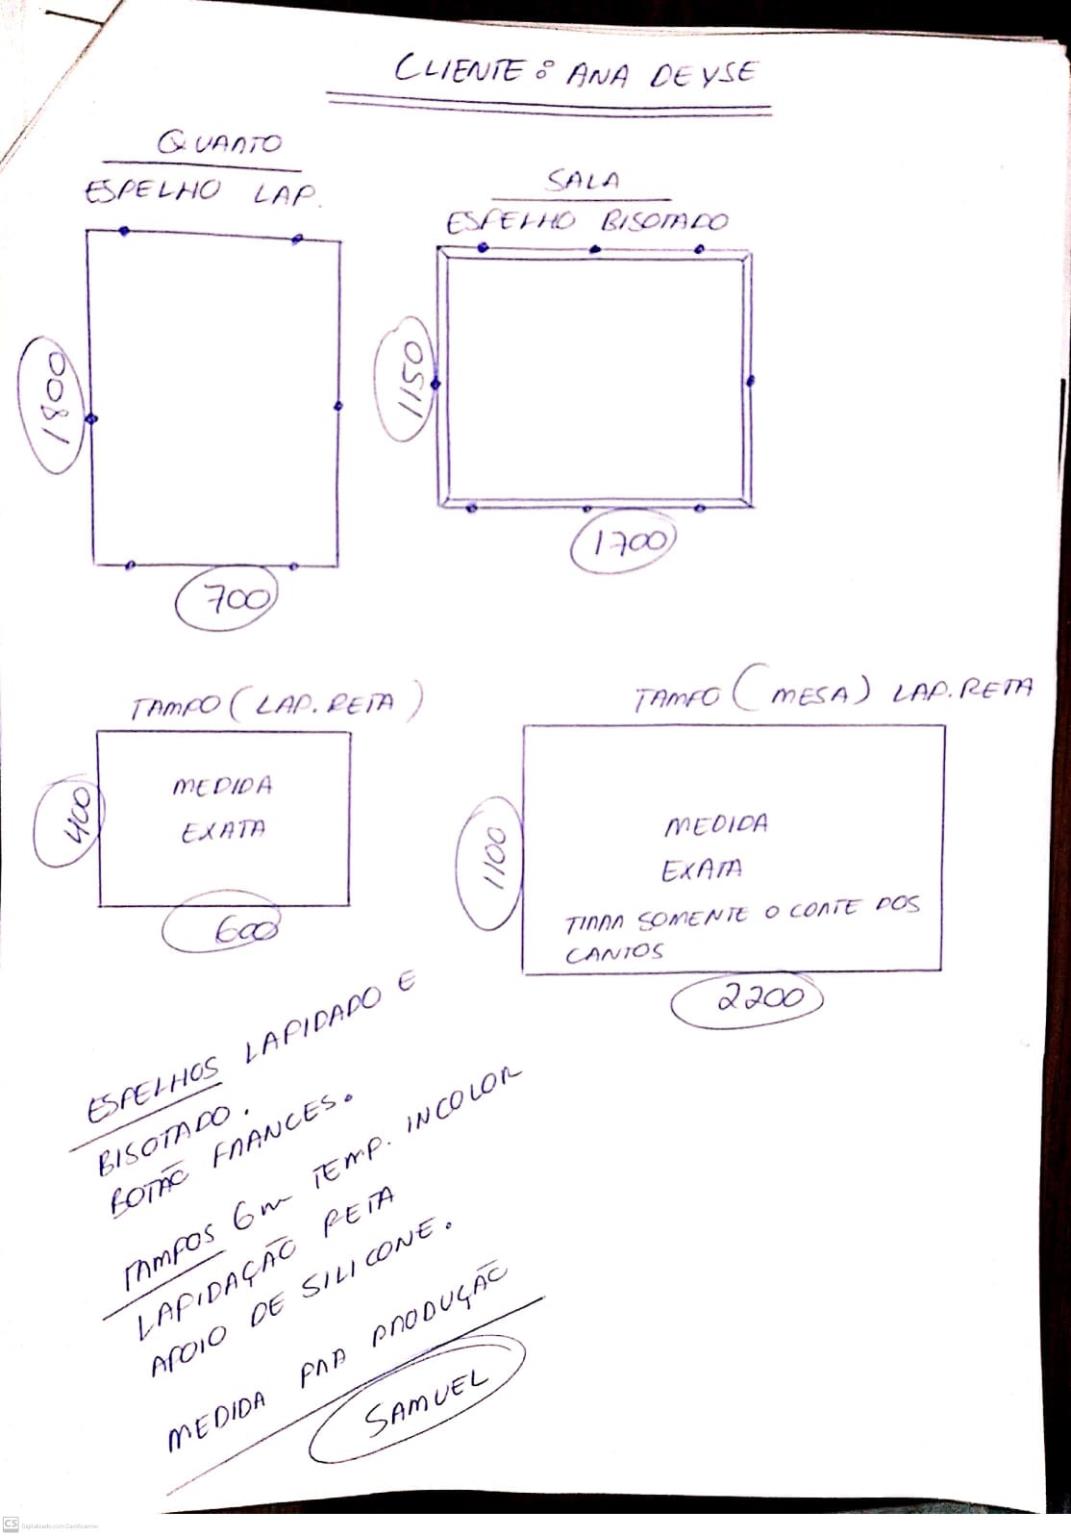 CLIENTE: ANA DEYSE
QUARTO
ESPELHO LAP.
1800
700
SALA
ESPELHO BISOTADO
1150
1700
TAMPO (LAP. RETA)
MEDIDA
EXATA
400
600
TAMPO (MESA) LAP. RETA
MEDIDA
EXATA
TIRAR SOMENTE O CORTE DOS
CANTOS
1100
2200
ESPELHOS LAPIDADO E
BISOTADO.
BOTÃO FRANCES.
TAMPOS 6m TEMP. INCOLOR
LAPIDAÇÃO RETA
APOIO DE SILICONE.
MEDIDA PRA PRODUÇÃO
SAMUEL
CS Digitalizado com CamScanner